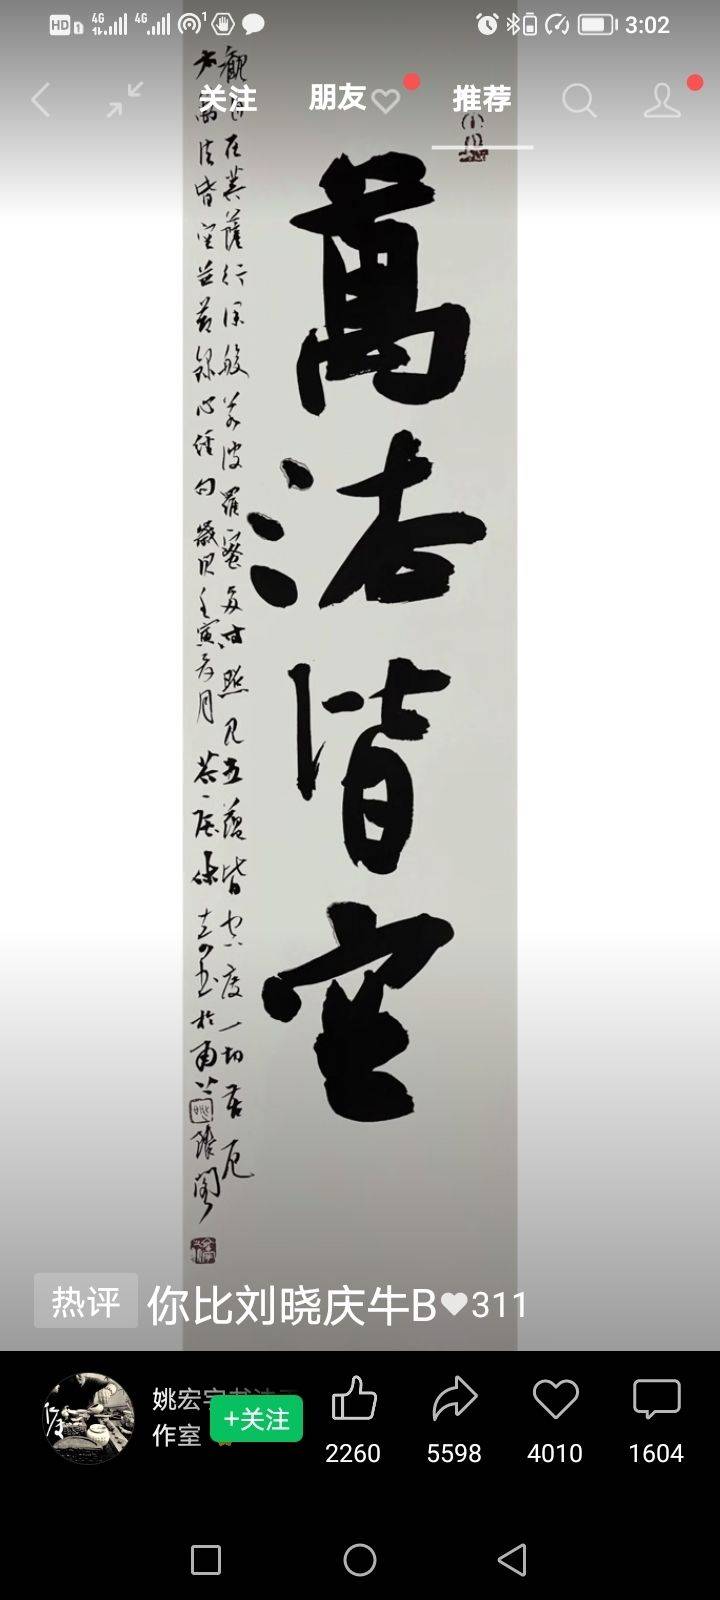 HD 1 4G 4G 1 3:02
关注 朋友 推荐
萬法皆空
觀自在菩薩行深般若波羅蜜多時照見五蘊皆空度一切苦厄
心經句
壬寅
热评 你比刘晓庆牛B 311
姚宏宇书法工
作室
+关注
2260 5598 4010 1604